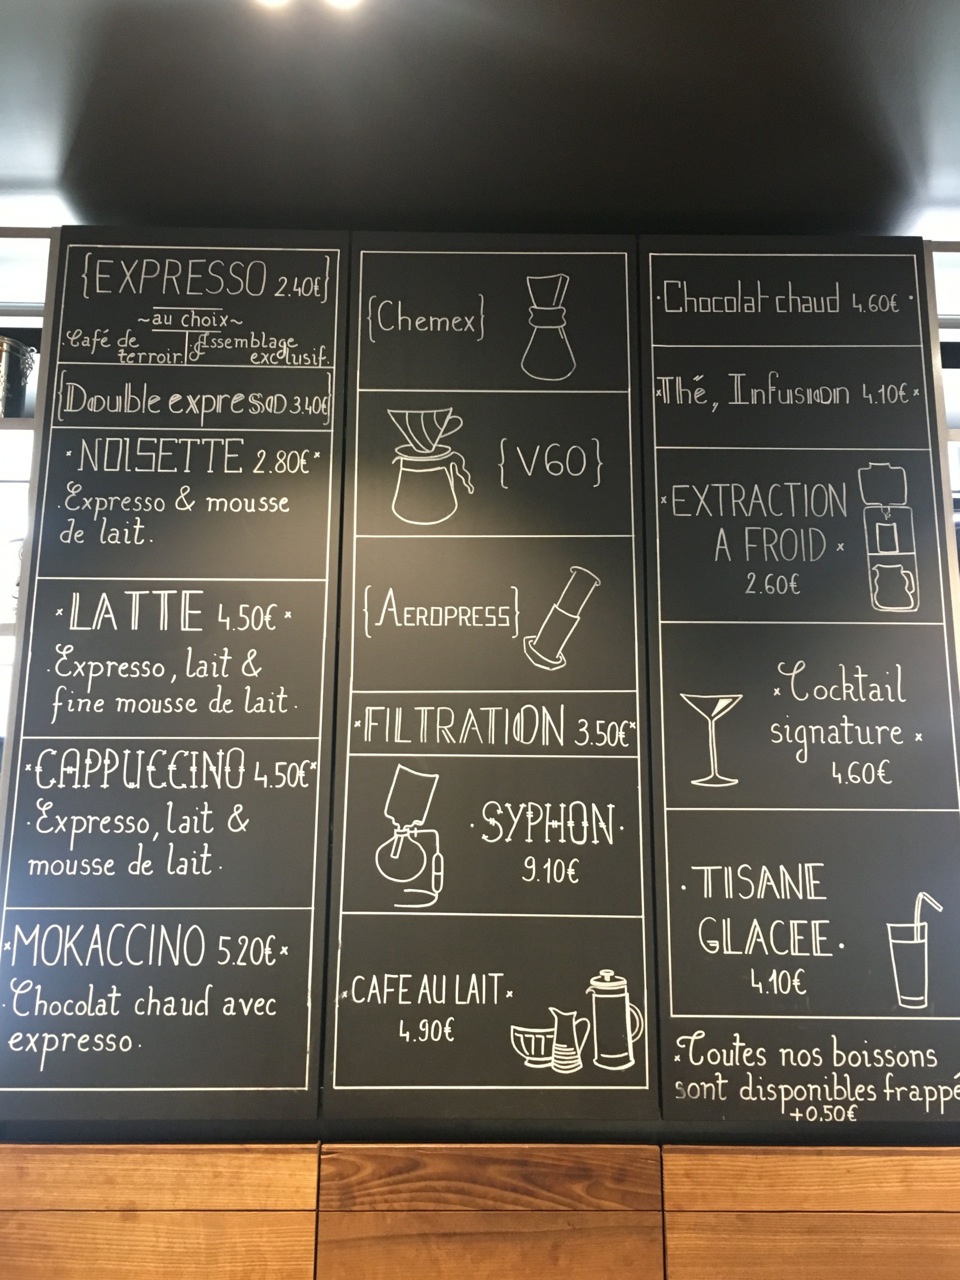 {EXPRESSO 2.40€}
~au choix~
.Café de
terroir.
.Assemblage
exclusif.
{Double expresso 3.40€}
*NOISETTE 2.80€*
.Expresso & mousse
de lait.
*LATTE 4.50€*
.Expresso, lait &
fine mousse de lait.
*CAPPUCCINO 4.50€*
.Expresso, lait &
mousse de lait.
*MOKACCINO 5.20€*
.Chocolat chaud avec
expresso.
{Chemex}
{V60}
{AEROPRESS}
*FILTRATION 3.50€*
.SYPHON.
9.10€
*CAFE AU LAIT*
4.90€
.Chocolat chaud 4.60€.
*Thé, Infusion 4.10€*
*EXTRACTION
A FROID*
2.60€
*Cocktail
signature*
4.60€
.TISANE
GLACEE.
4.10€
*Toutes nos boissons
sont disponibles frappé
+0.50€